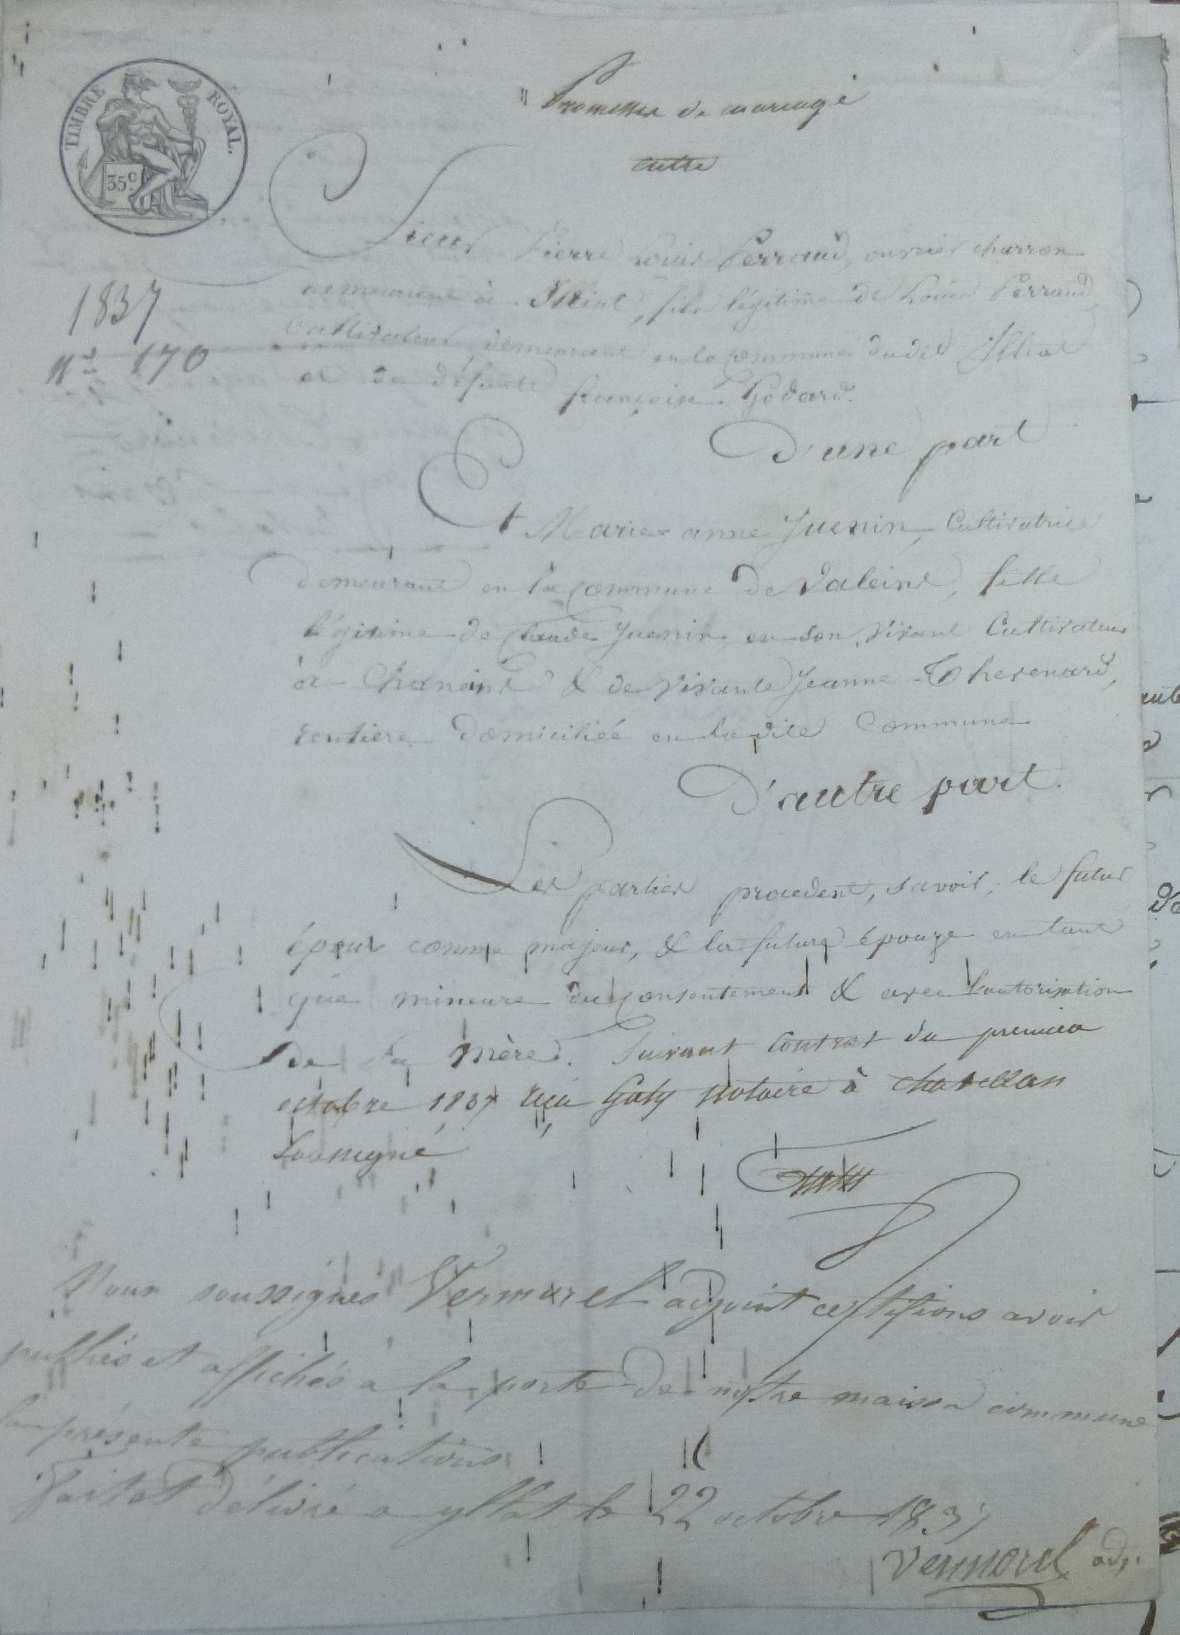 TIMBRE ROYAL.
35c.
Promesses de mariage
entre
1837
No 170
Sieur Pierre Louis Perraud, ouvrier charron
demeurant à Illiat, fils légitime de Louis Perraud
Cultivateur, demeurant en la commune dudit Illiat
et de défunte françoise Godard.
D'une part
Et Marie anne Juenin, Cultivatrice
demeurant en la Commune de Valeins, fille
légitime de Claude Juenin, en son vivant Cultivateur
à Chaneins & de vivante Jeanne Thevenard,
rentiere domiciliée en ladite Commune
D'autre part.
Les parties procedent, savoir, le futur
époux comme majeur, & la future épouze en tant
que mineure du consentement & avec l'autorisation
de sa mère. Suivant contrat du premier
octobre 1837 reçu Galy Notaire à chatillon
Soussigné
Nous soussignés Vermorel adjoint certifions avoir
publiés et affichés a la porte de notre maison commune
la présente publications
Fait et délivré a yllat le 22 octobre 1837
Vermorel adj.